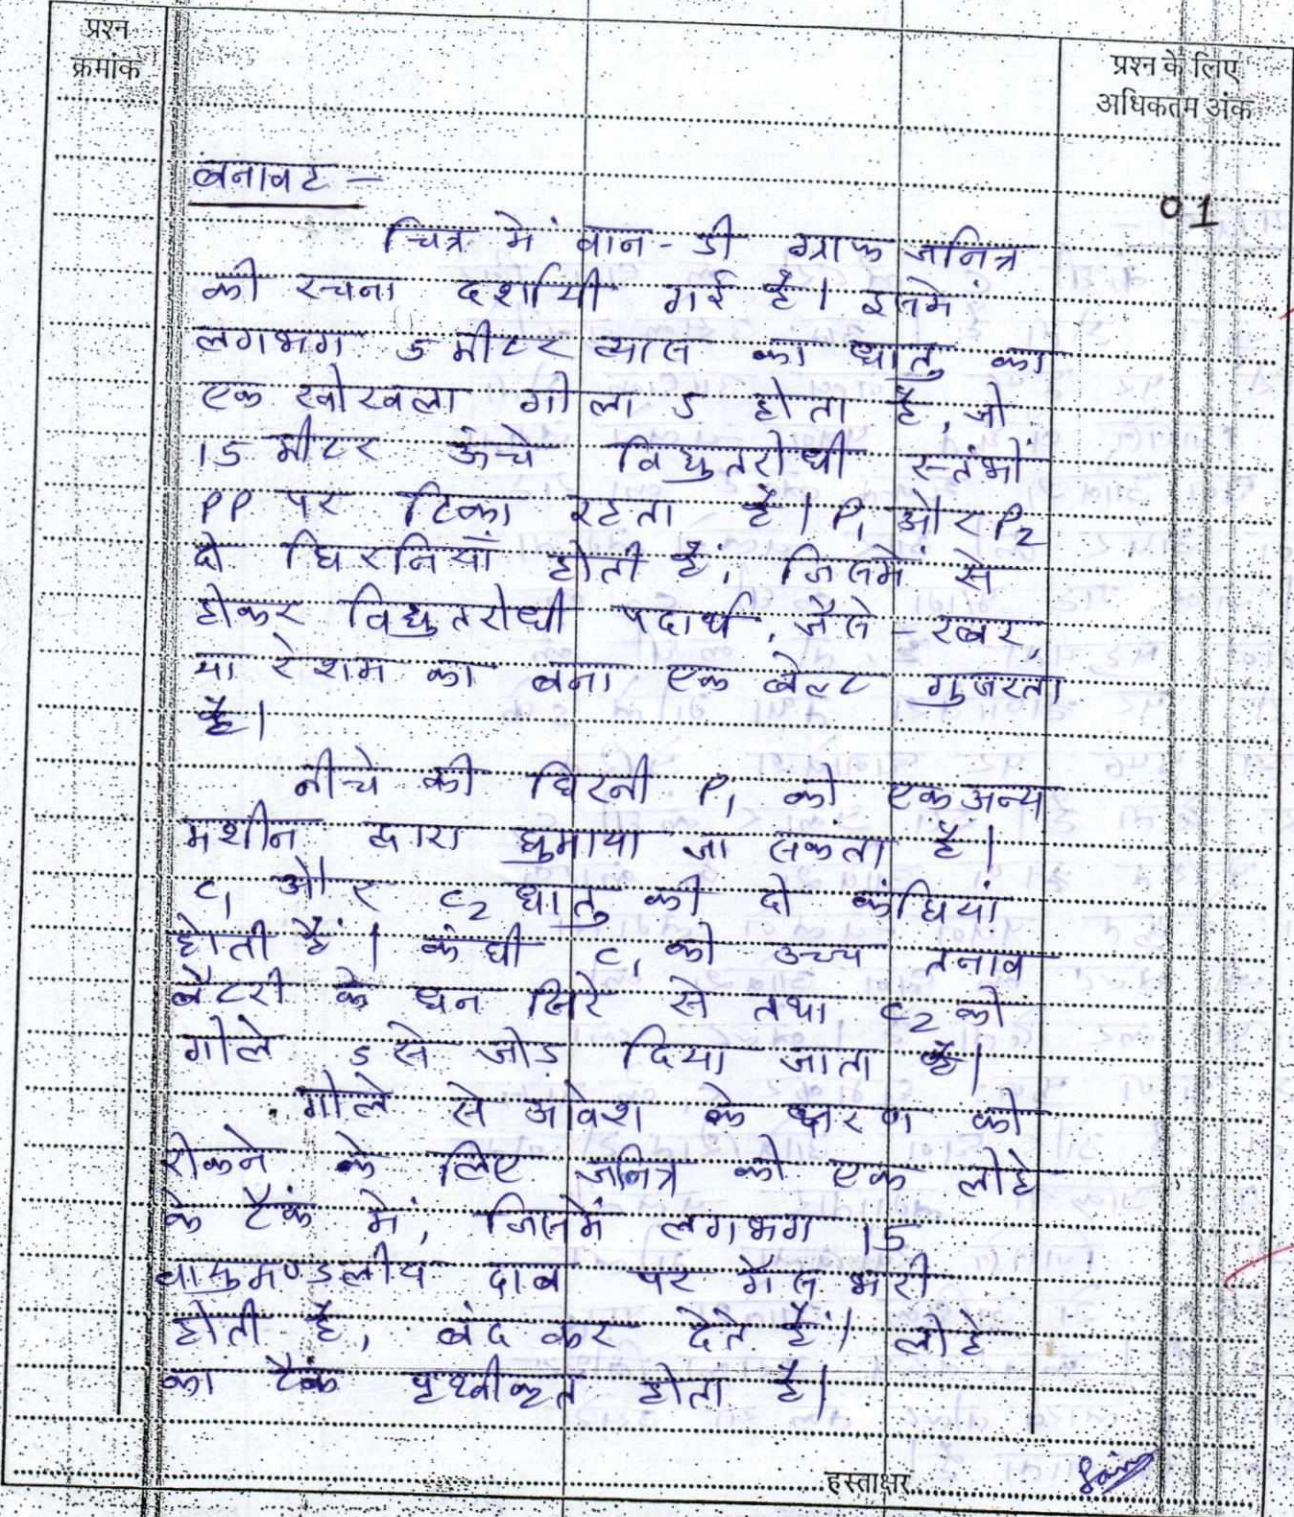 प्रश्न
क्रमांक
प्रश्न के लिए
अधिकतम अंक
01
बनावट –
चित्र में वान-डी ग्राफ जनित्र
की रचना दर्शायी गई है। इसमें
लगभग 5 मीटर व्यास का धातु का
एक खोखला गोला S होता है, जो
15 मीटर ऊंचे विद्युतरोधी स्तंभों
PP पर टिका रहता है। P₁ और P₂
दो घिरनियां होती हैं, जिसमें से
होकर विद्युतरोधी पदार्थ, जैसे – रबर,
या रेशम का बना एक बेल्ट गुजरता
है।
नीचे की घिरनी P₁ को एक अन्य
मशीन द्वारा घुमाया जा सकता है।
C₁ और C₂ धातु की दो कंघियां
होती हैं। कंघी C₁ को उच्च तनाव
बैटरी के धन सिरे से तथा C₂ को
गोले S से जोड़ दिया जाता है।
गोले से आवेश के क्षरण को
रोकने के लिए जनित्र को एक लोहे
के टैंक में, जिसमें लगभग 15
वायुमण्डलीय दाब पर गैस भरी
होती है, बंद कर देते हैं। लोहे
का टैंक पृथ्वीकृत होता है।
हस्ताक्षर